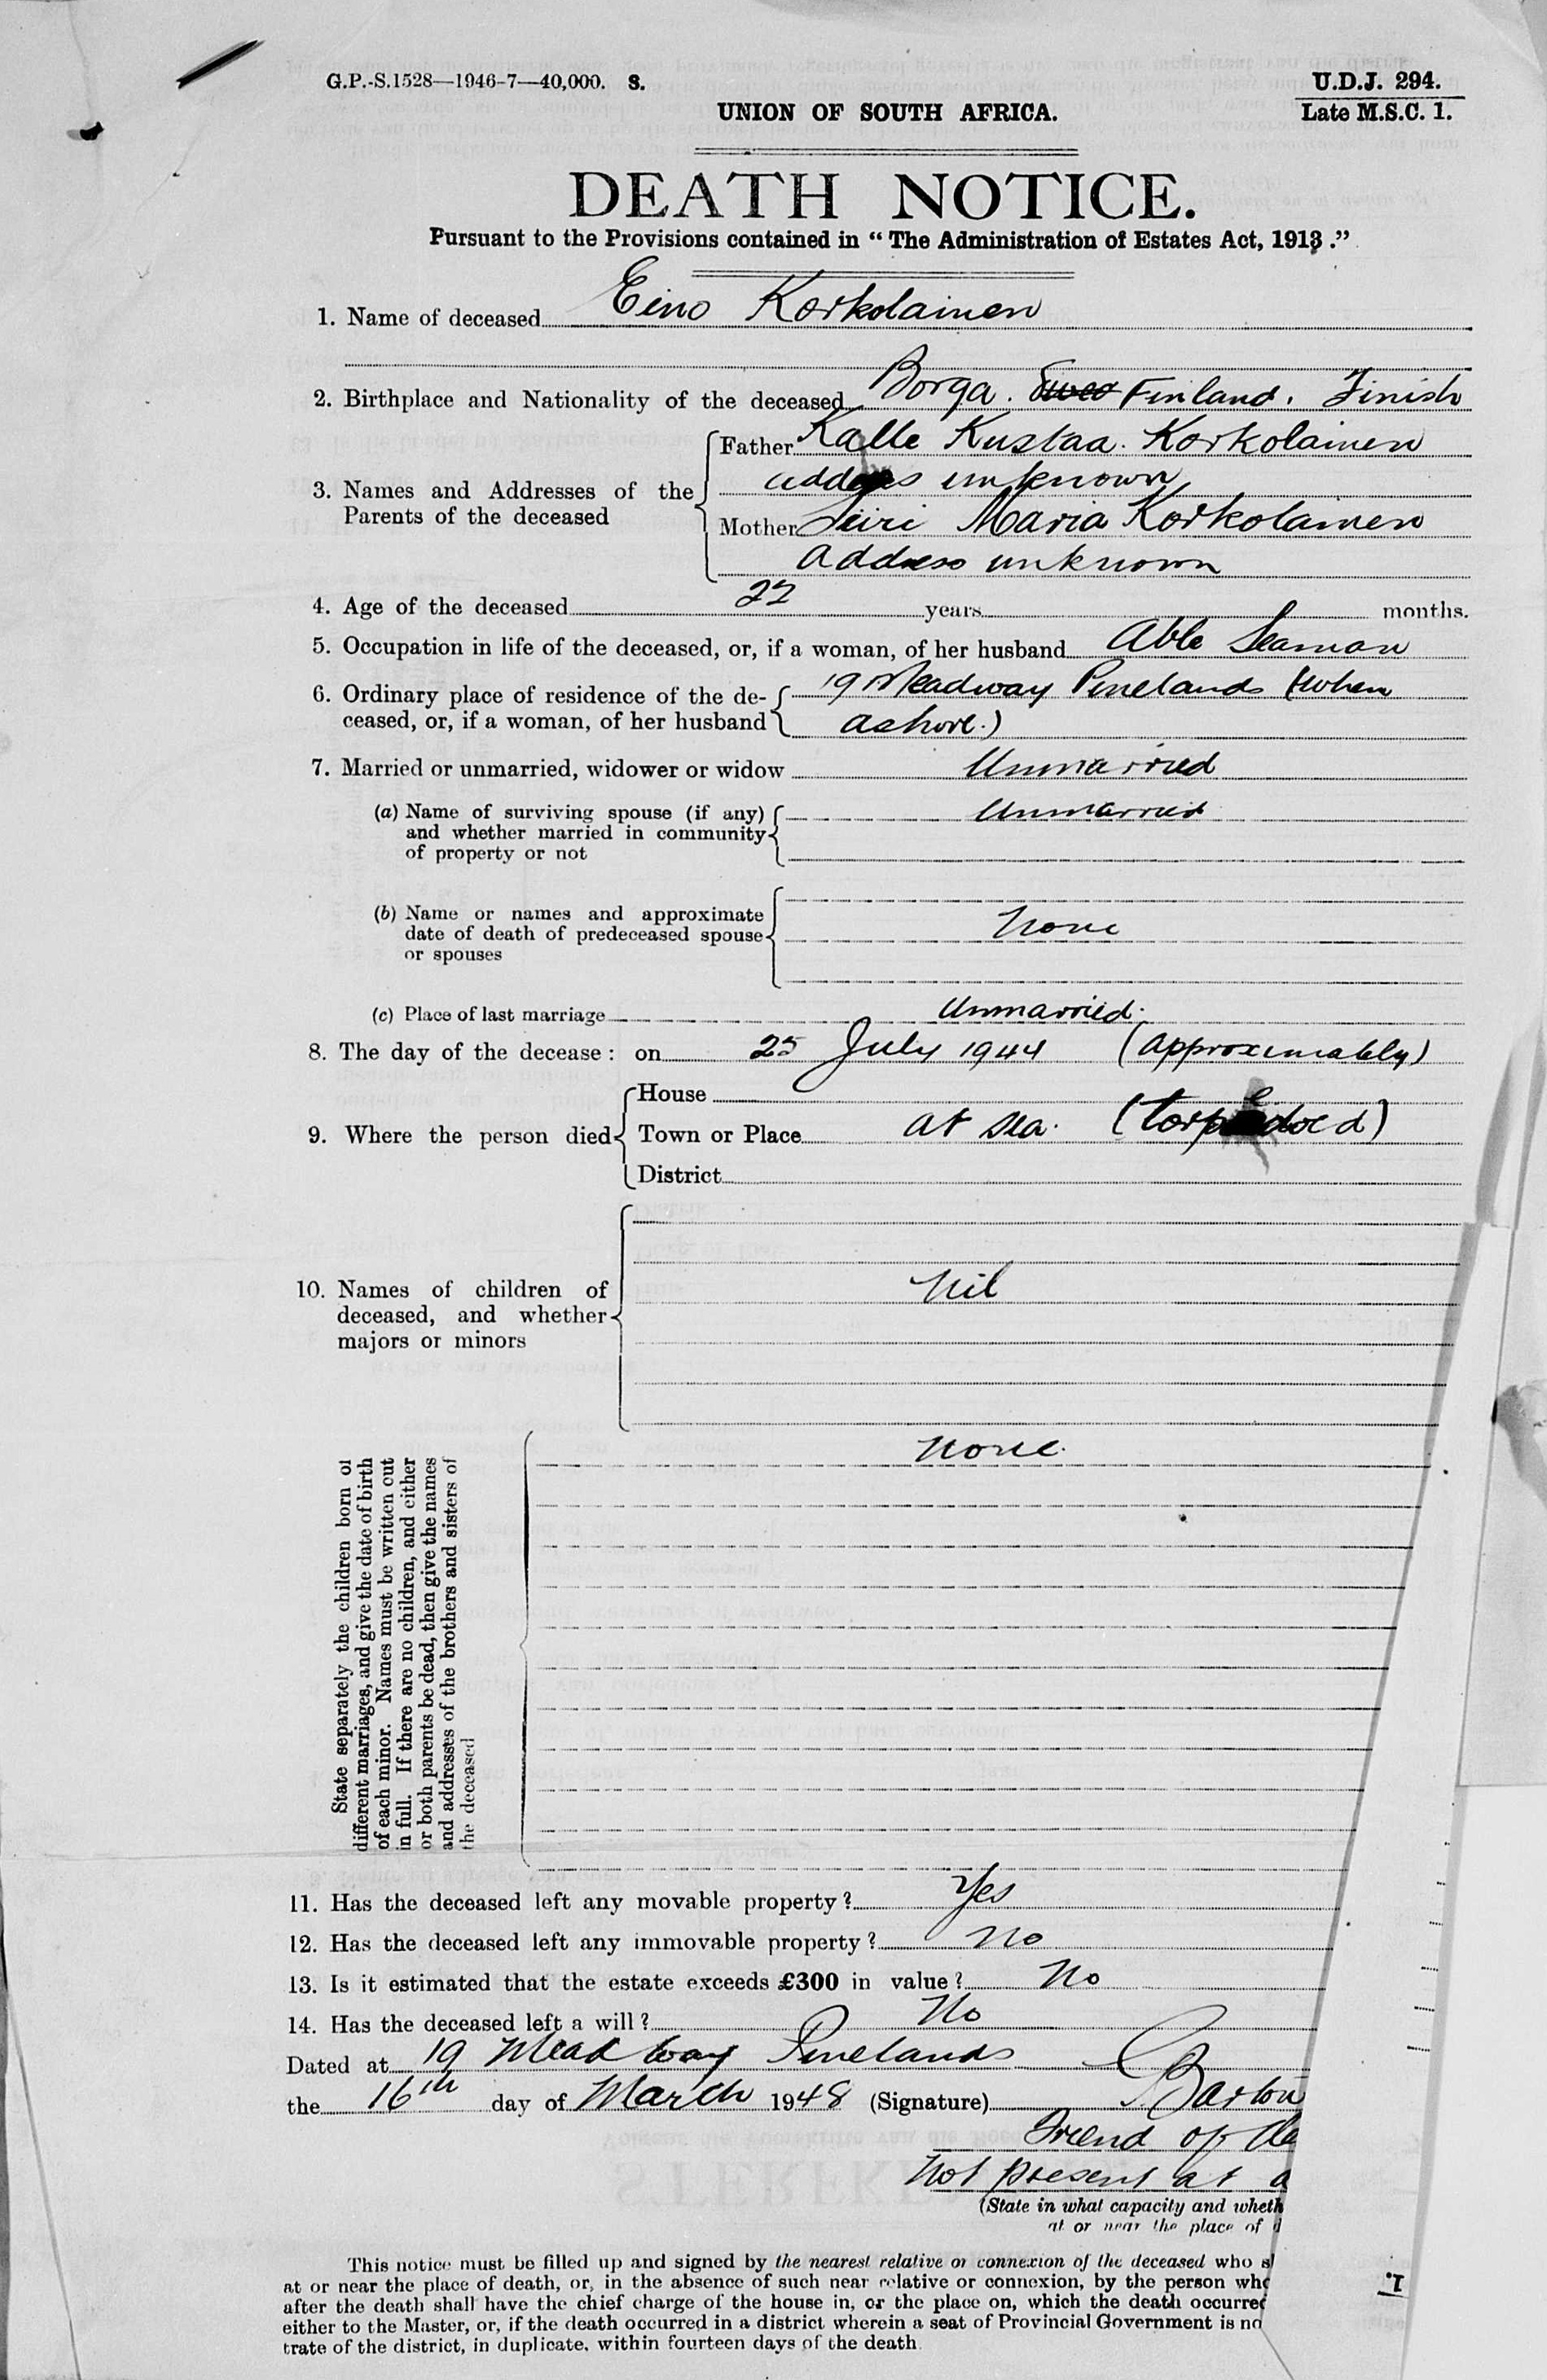 G.P.-S.1528—1946-7—40,000. S.
U.D.J. 294.
Late M.S.C. 1.
UNION OF SOUTH AFRICA.
DEATH NOTICE.
Pursuant to the Provisions contained in “ The Administration of Estates Act, 1913 .”
1. Name of deceased Eino Korkolainen
2. Birthplace and Nationality of the deceased Borga. Finland. Finish
3. Names and Addresses of the Parents of the deceased
Father Kalle Kustaa. Korkolainen
address unknown
Mother Siiri Maria Korkolainen
address unknown
4. Age of the deceased 22 years months.
5. Occupation in life of the deceased, or, if a woman, of her husband Able Seaman
6. Ordinary place of residence of the de- 19 Meadway Pinelands (when
ceased, or, if a woman, of her husband ashore.)
7. Married or unmarried, widower or widow Unmarried
(a) Name of surviving spouse (if any) Unmarried
and whether married in community
of property or not
(b) Name or names and approximate
date of death of predeceased spouse None
or spouses
(c) Place of last marriage Unmarried.
8. The day of the decease : on 25 July 1944 (approximately)
9. Where the person died
House
Town or Place at sea. (torpedoed)
District
10. Names of children of Nil
deceased, and whether
majors or minors
None.
State separately the children born of
different marriages, and give the date of birth
of each minor. Names must be written out
in full. If there are no children, and either
or both parents be dead, then give the names
and addresses of the brothers and sisters of
the deceased
11. Has the deceased left any movable property ? Yes
12. Has the deceased left any immovable property ? No
13. Is it estimated that the estate exceeds £300 in value ? No
14. Has the deceased left a will ? No
Dated at 19 Mead Way Pinelands
the 16th day of March 1948 (Signature) Barton
Friend of de
Not present at d
(State in what capacity and wheth
at or near the place of d
This notice must be filled up and signed by the nearest relative or connexion of the deceased who s
at or near the place of death, or, in the absence of such near relative or connexion, by the person who
after the death shall have the chief charge of the house in, or the place on, which the death occurred
either to the Master, or, if the death occurred in a district wherein a seat of Provincial Government is no
trate of the district, in duplicate, within fourteen days of the death.